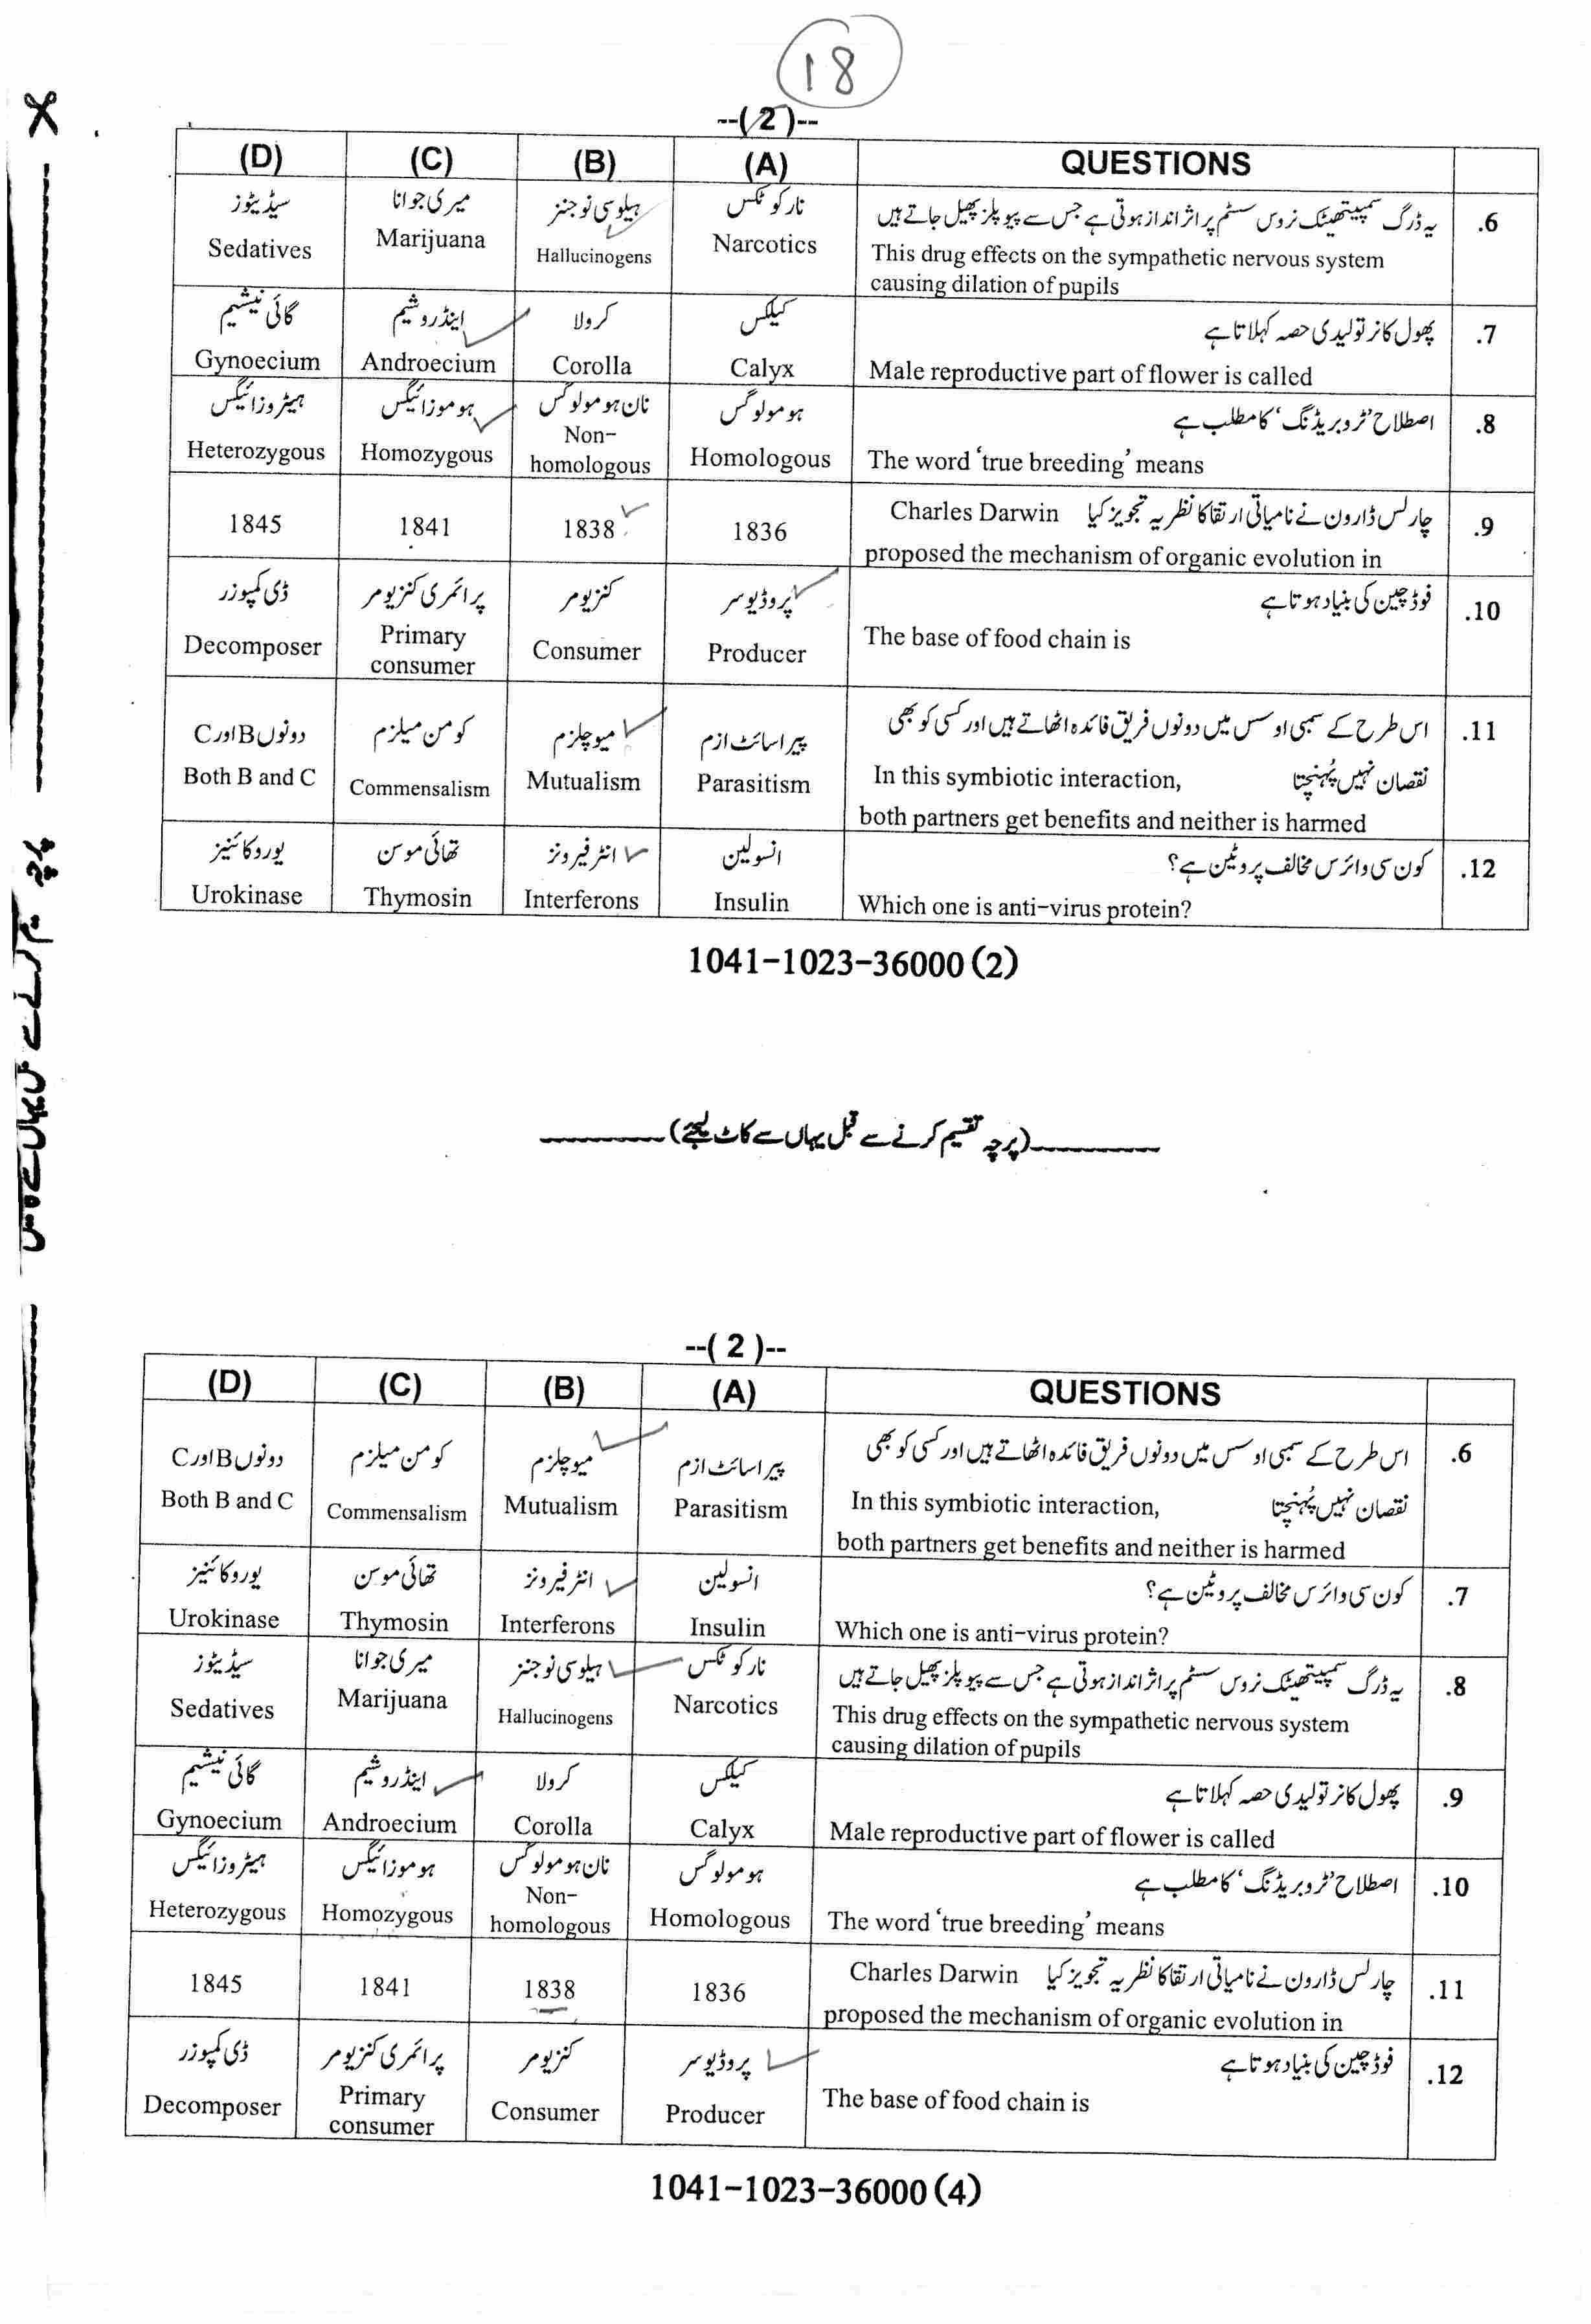 18
--( 2 )--
(D) (C) (B) (A) QUESTIONS
سیڈیٹوز میری جوانا ہیلوسی نوجنز نارکوٹکس یہ ڈرگ سمپیتھیٹک نروس سسٹم پر اثر انداز ہوتی ہے جس سے پیوپلز پھیل جاتے ہیں .6
Sedatives Marijuana Hallucinogens Narcotics This drug effects on the sympathetic nervous system
causing dilation of pupils
گائی نیشیم اینڈروشیم کرولا کیلکس پھول کا نر تولیدی حصہ کہلاتا ہے .7
Gynoecium Androecium Corolla Calyx Male reproductive part of flower is called
ہیٹروزائیگس ہوموزائیگس نان ہومولوگس ہومولوگس اصطلاح ’ٹرو بریڈنگ‘ کا مطلب ہے .8
Heterozygous Homozygous Non-
homologous Homologous The word ‘true breeding’ means
1845 1841 1838 1836 Charles Darwin چارلس ڈارون نے نامیاتی ارتقا کا نظریہ تجویز کیا .9
proposed the mechanism of organic evolution in
ڈی کمپوزر پرائمری کنزیومر کنزیومر پروڈیوسر فوڈ چین کی بنیاد ہوتا ہے .10
Decomposer Primary
consumer Consumer Producer The base of food chain is
دونوں B اور C کومن سیلزم میوچلزم پیراسائٹ ازم اس طرح کے سمبی اوسس میں دونوں فریق فائدہ اٹھاتے ہیں اور کسی کو بھی .11
Both B and C Commensalism Mutualism Parasitism In this symbiotic interaction, نقصان نہیں پُہنچتا
both partners get benefits and neither is harmed
یوروکائنیز تھائی موسن انٹرفیرونز انسولین کون سی وائرس مخالف پروٹین ہے؟ .12
Urokinase Thymosin Interferons Insulin Which one is anti-virus protein?
1041-1023-36000 (2)
(پرچہ تقسیم کرنے سے قبل یہاں سے کاٹ لیجئے)
--( 2 )--
(D) (C) (B) (A) QUESTIONS
دونوں B اور C کومن سیلزم میوچلزم پیراسائٹ ازم اس طرح کے سمبی اوسس میں دونوں فریق فائدہ اٹھاتے ہیں اور کسی کو بھی .6
Both B and C Commensalism Mutualism Parasitism In this symbiotic interaction, نقصان نہیں پُہنچتا
both partners get benefits and neither is harmed
یوروکائنیز تھائی موسن انٹرفیرونز انسولین کون سی وائرس مخالف پروٹین ہے؟ .7
Urokinase Thymosin Interferons Insulin Which one is anti-virus protein?
سیڈیٹوز میری جوانا ہیلوسی نوجنز نارکوٹکس یہ ڈرگ سمپیتھیٹک نروس سسٹم پر اثر انداز ہوتی ہے جس سے پیوپلز پھیل جاتے ہیں .8
Sedatives Marijuana Hallucinogens Narcotics This drug effects on the sympathetic nervous system
causing dilation of pupils
گائی نیشیم اینڈروشیم کرولا کیلکس پھول کا نر تولیدی حصہ کہلاتا ہے .9
Gynoecium Androecium Corolla Calyx Male reproductive part of flower is called
ہیٹروزائیگس ہوموزائیگس نان ہومولوگس ہومولوگس اصطلاح ’ٹرو بریڈنگ‘ کا مطلب ہے .10
Heterozygous Homozygous Non-
homologous Homologous The word ‘true breeding’ means
1845 1841 1838 1836 Charles Darwin چارلس ڈارون نے نامیاتی ارتقا کا نظریہ تجویز کیا .11
proposed the mechanism of organic evolution in
ڈی کمپوزر پرائمری کنزیومر کنزیومر پروڈیوسر فوڈ چین کی بنیاد ہوتا ہے .12
Decomposer Primary
consumer Consumer Producer The base of food chain is
1041-1023-36000 (4)